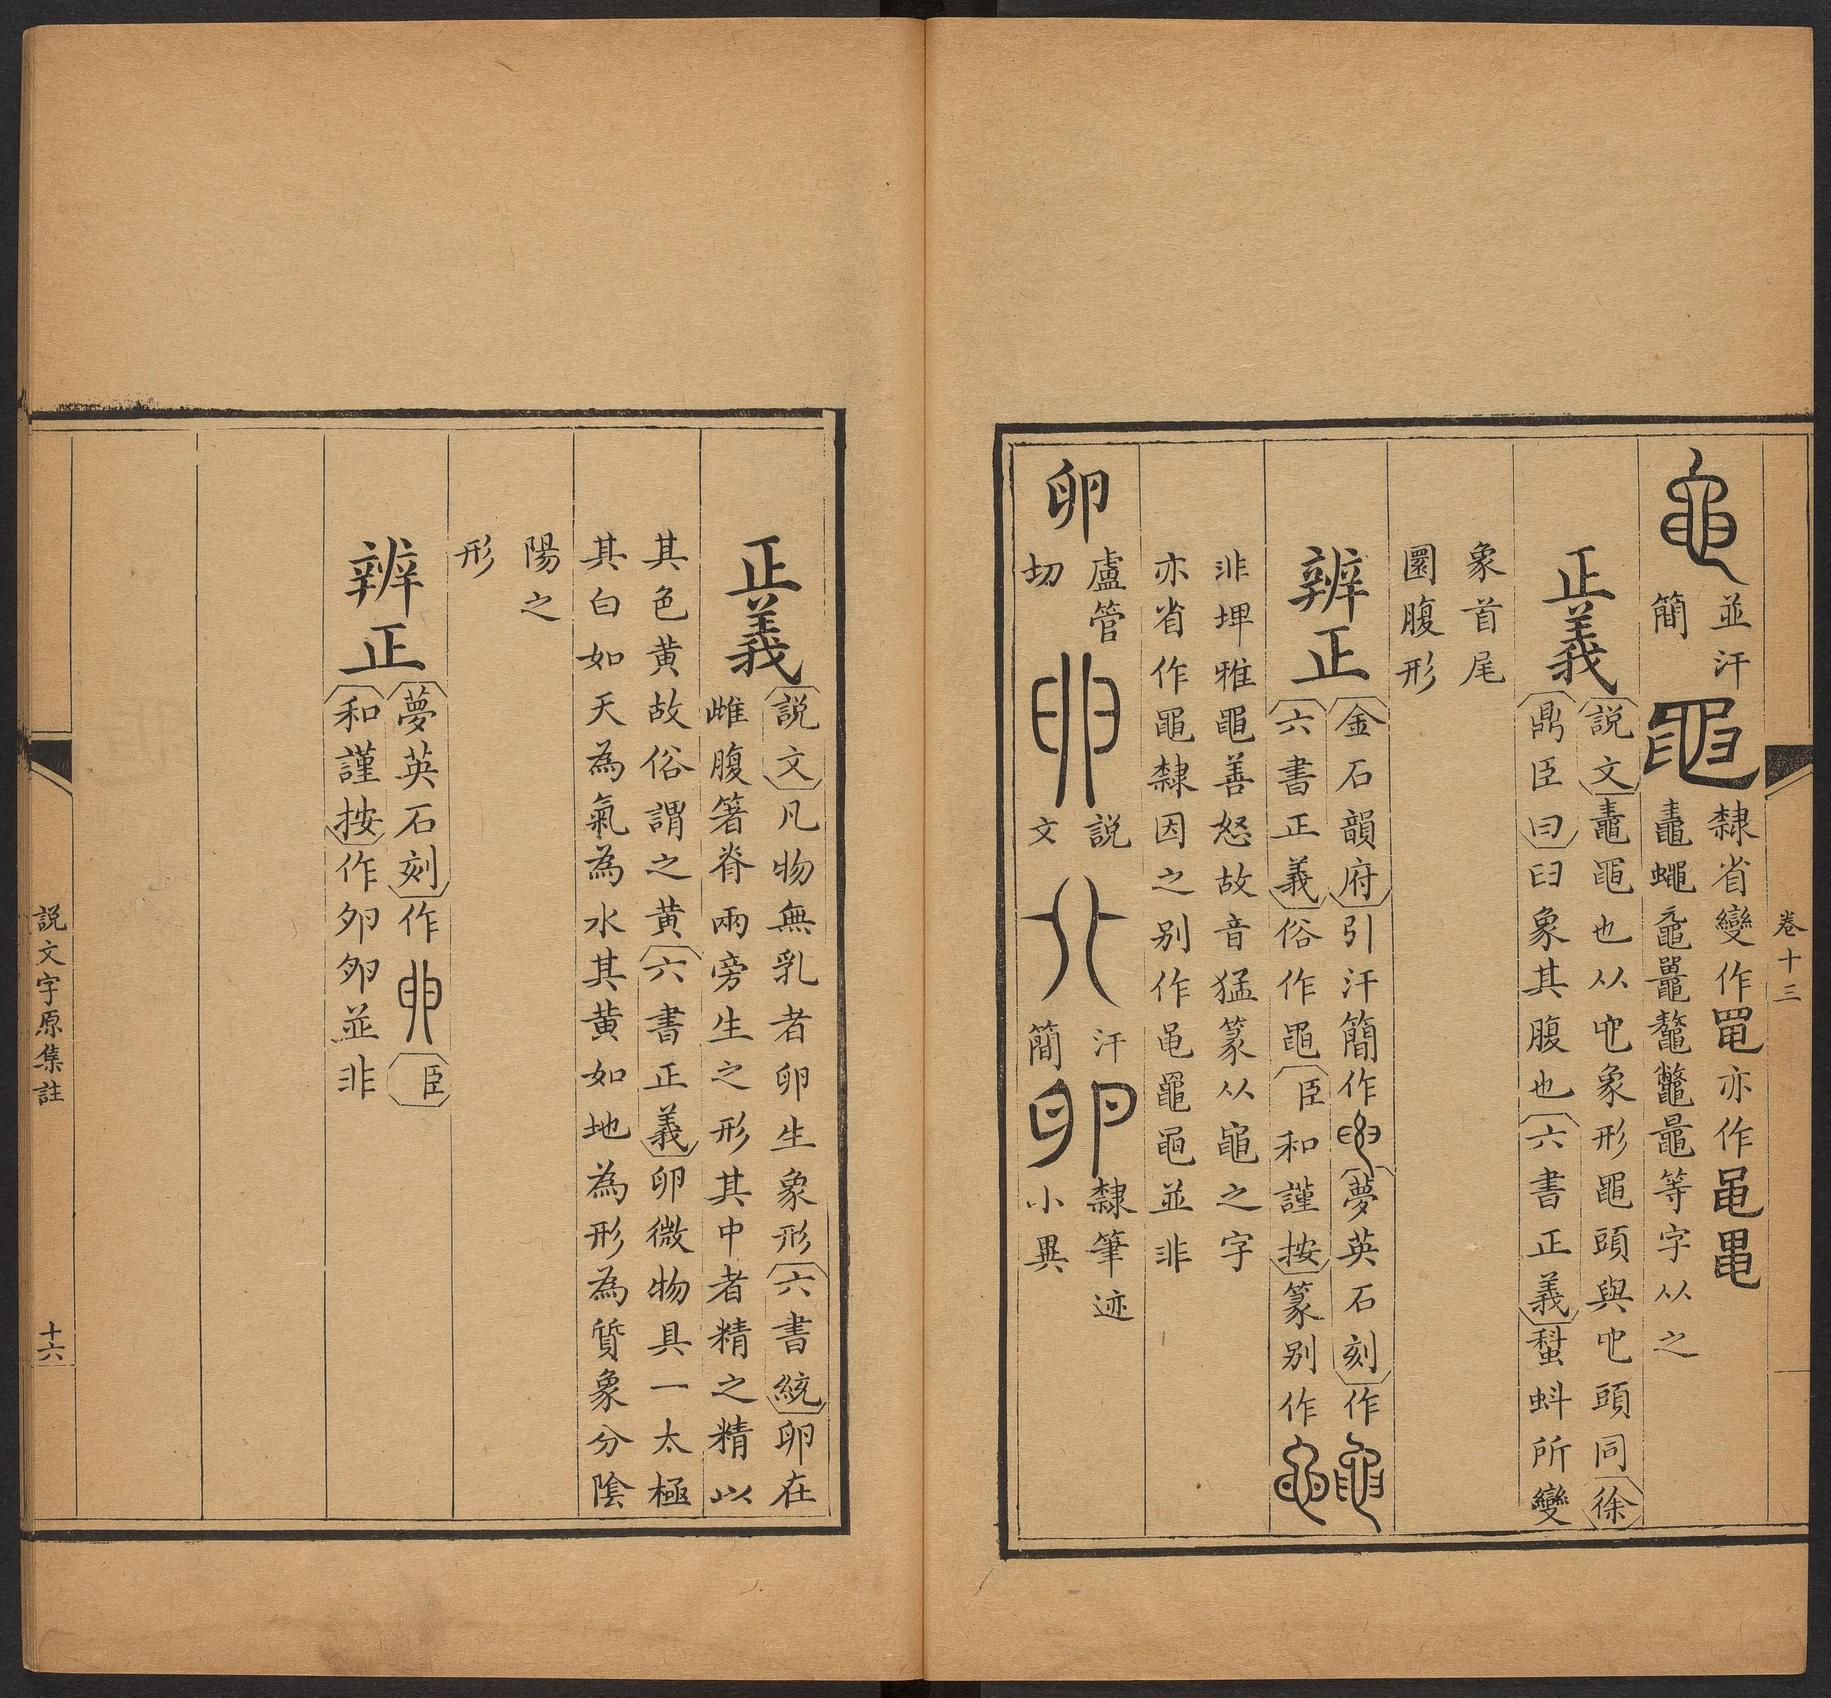 卷十三
並汗
簡
隸省變作黽亦作黾黽
鼃蠅鼋鼉鼇鼈鼂等字从之
正義
說文鼃黽也从它象形黽頭與它頭同徐
鼎臣曰𦥑象其腹也六書正義蝌蚪所變
象首尾
圜腹形
辨正
金石韻府引汗簡作夢英石刻作
六書正義俗作黽臣和謹按篆別作
非埤雅黽善怒故音猛篆从黽之字
亦省作黽隸因之别作黾黽黽並非
卵
盧管
切
說
文
汗
簡
隸筆迹
小異
正義
說文凡物無乳者卵生象形六書統卵在
雌腹箸脊兩旁生之形其中者精之精以
其色黄故俗謂之黄六書正義卵微物具一太極
其白如天為氣為水其黄如地為形為質象分陰
陽之
形
辨正
夢英石刻作臣
和謹按作夘夘並非
說文字原集註
十六